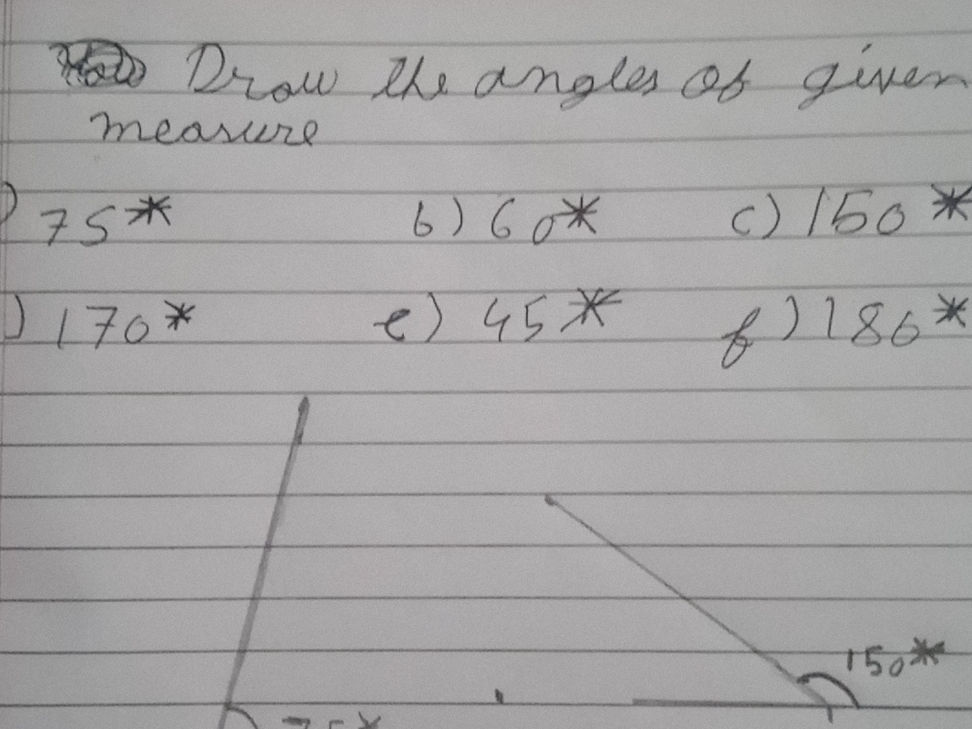 Draw the angles of given
measure
) 75* b) 60* c) 150*
) 170* e) 45* f) 180*
150*
75*